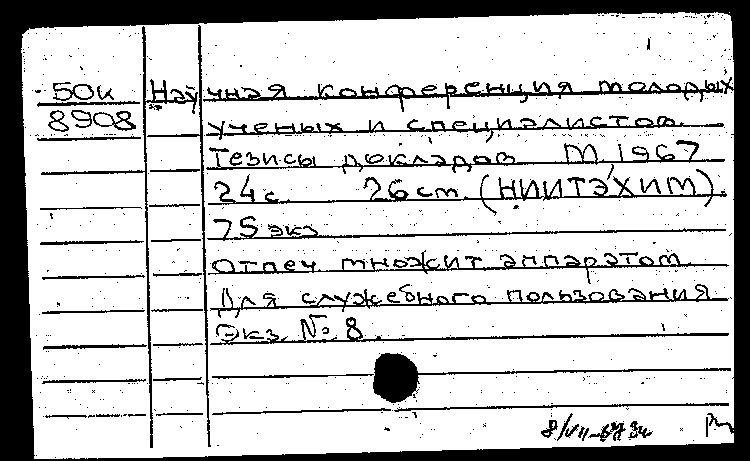 50к Научная конференция молодых
8908 ученых и специалистов.
Тезисы докладов М, 1967
24с. 26 см. (НИИТЭХИМ).
75 экз
Отпеч множит аппаратом
Для служебного пользования
Экз. № 8.